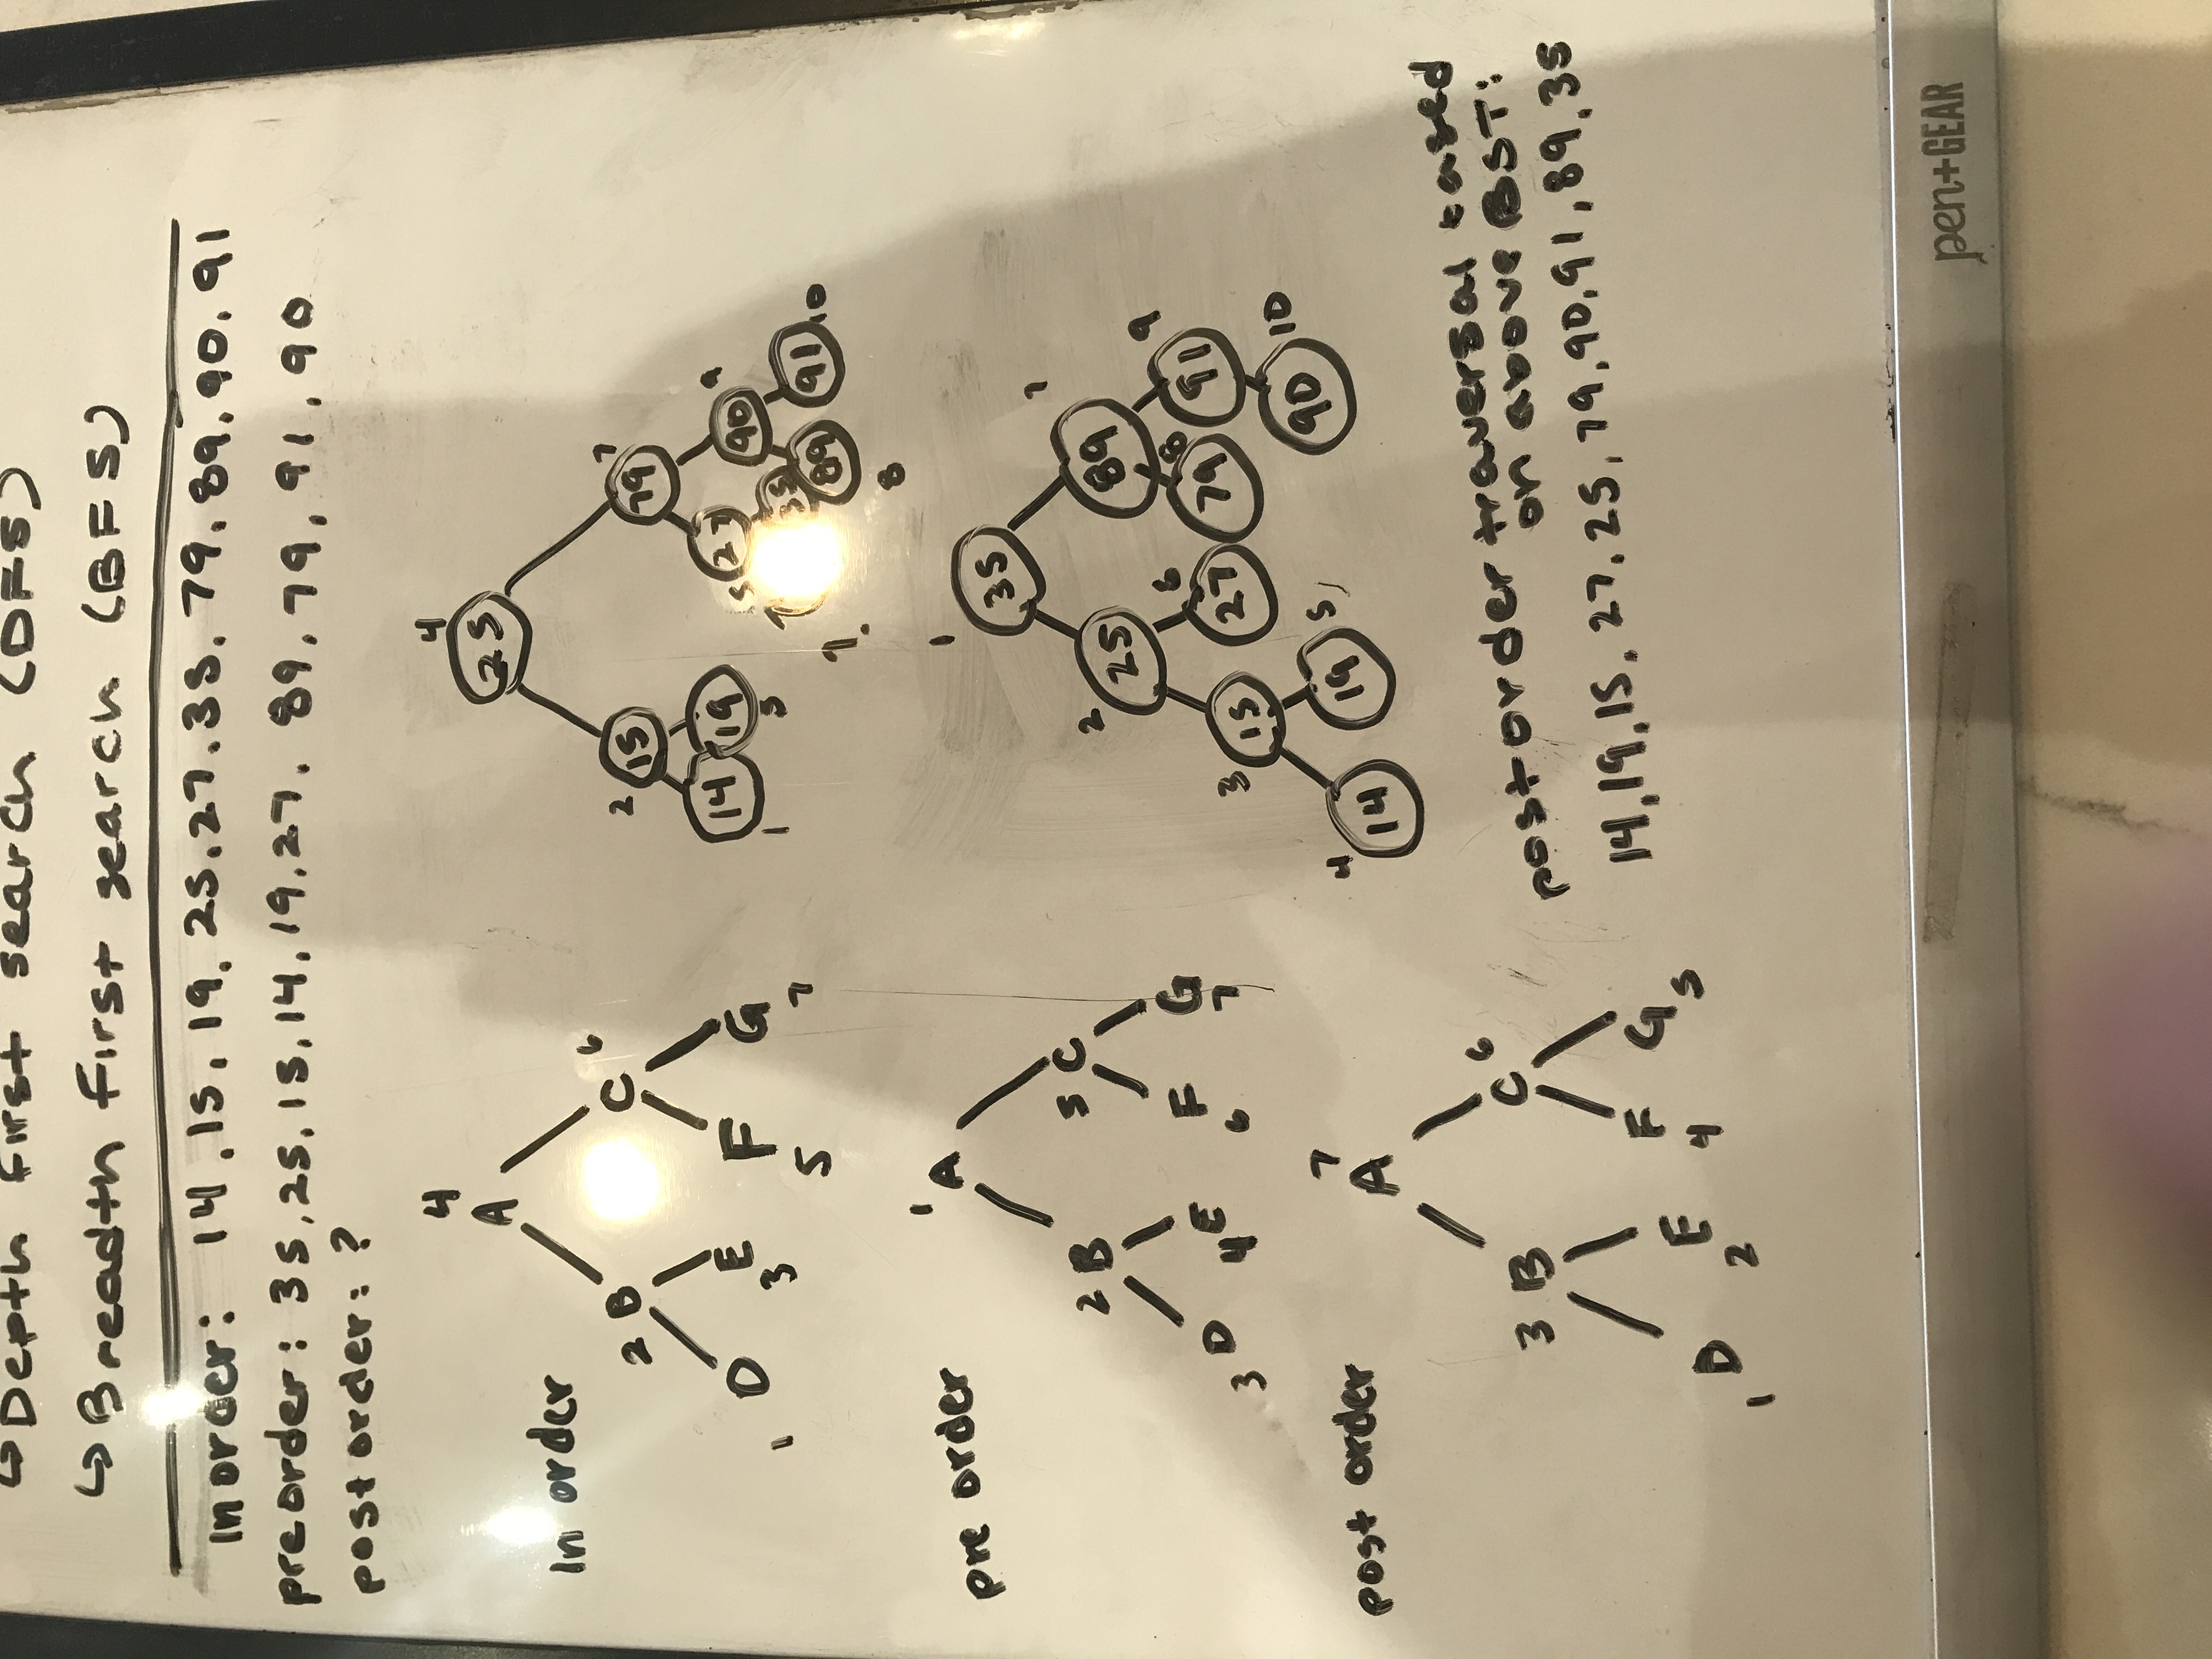 ↳ Depth first search (DFS)
↳ Breadth first search (BFS)
In order: 14, 15, 19, 25, 27, 35, 79, 89, 90, 91
preorder: 35, 25, 15, 14, 19, 27, 89, 79, 91, 90
post order: ?
In order
4
A
2 B
C 6
D
E
F
G
1
3
5
7
4
25
2
15
79
7
14
19
27
90
9
1
3
5
35
89
91
10
?
8
pre order
1
A
2 B
5 C
D
E
F
G
3
4
6
7
1
35
2
25
89
7
3
15
27
6
79
8
91
9
4
14
19
5
90
10
post order
7
A
3 B
C 6
D
E
F
G
1
2
4
5
postorder traversal based
on above BST:
14, 19, 15, 27, 25, 79, 90, 91, 89, 35
pen+GEAR